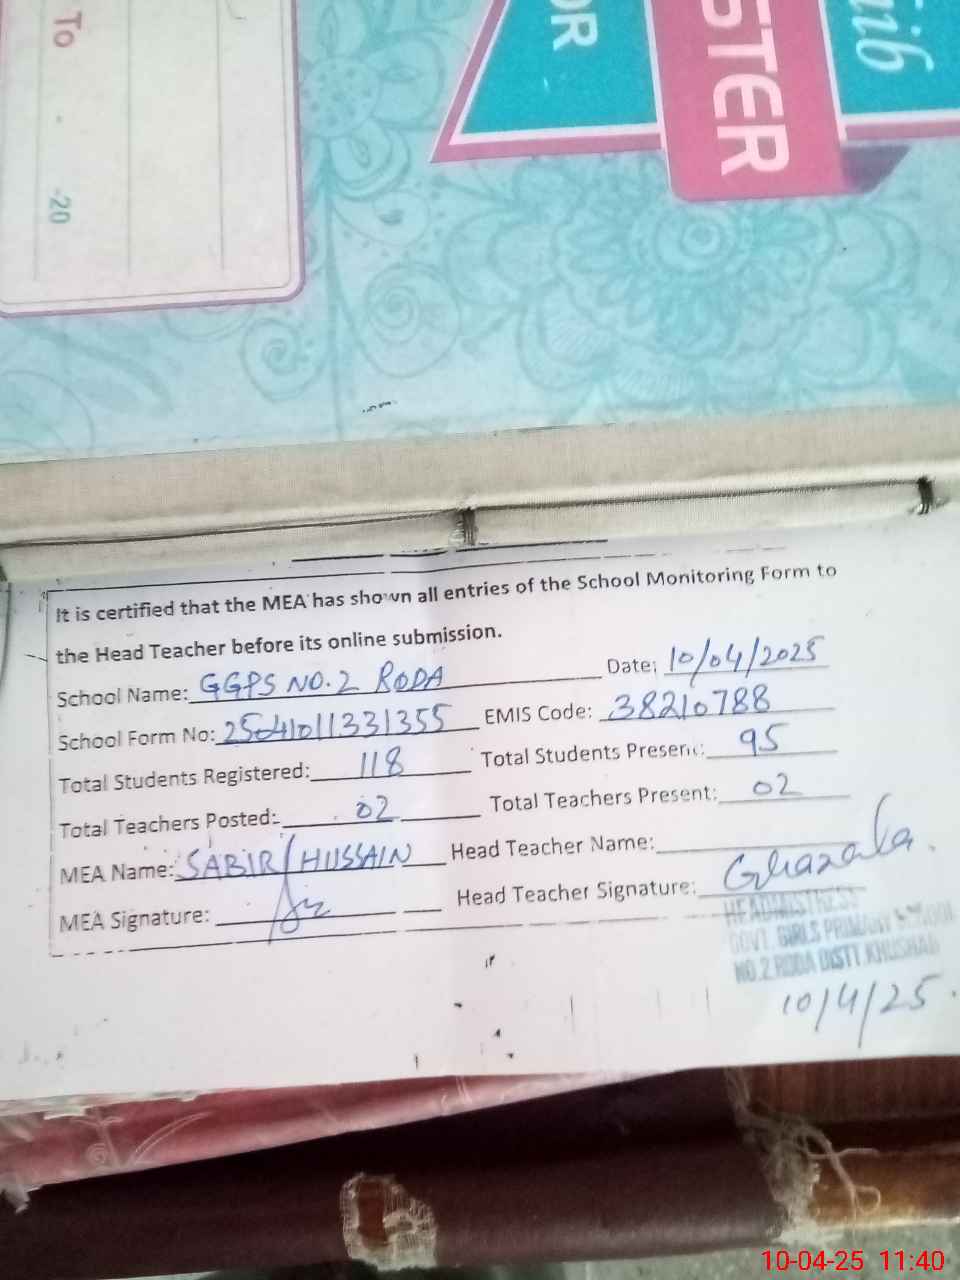 To
-
-20
OR
STER
It is certified that the MEA has shown all entries of the School Monitoring Form to
the Head Teacher before its online submission.
School Name: GGPS NO.2 RODA Date: 10/04/2025
School Form No: 2504101133 1355 EMIS Code: 38210788
Total Students Registered: 118 Total Students Present: 95
Total Teachers Posted: 02 Total Teachers Present: 02
MEA Name: SABIR HUSSAIN Head Teacher Name:
MEA Signature: Head Teacher Signature: Ghazala.
HEADMISTRESS
GOVT. GIRLS PRIMARY SCHOOL
NO.2 RODA DISTT KHUSHAB
10/4/25.
10-04-25 11:40